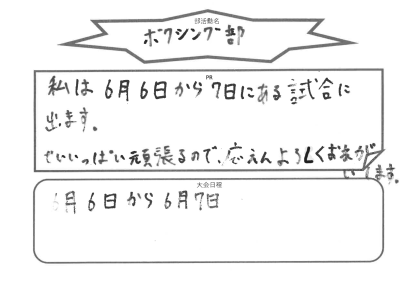 部活動名
ボクシング部
PR
私は6月6日から7日にある試合に
出ます。
せいいっぱい頑張るので、応えんよろしくおねがいします。
大会日程
6月6日から6月7日